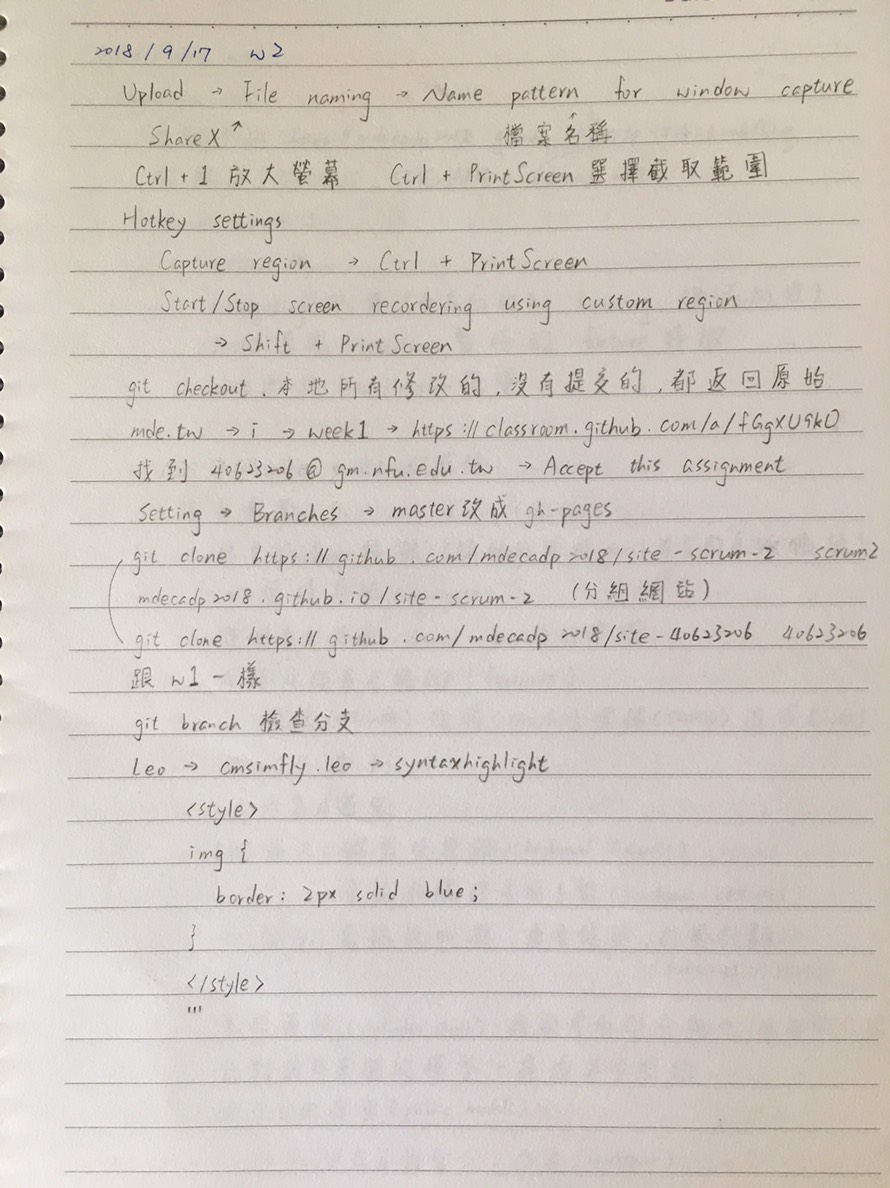 2018/9/17 w2
Upload → File naming → Name pattern for window capture
ShareX ↗ 檔案名稱
Ctrl + 1 放大螢幕 Ctrl + PrintScreen 選擇截取範圍
Hotkey settings
Capture region → Ctrl + PrintScreen
Start/Stop screen recordering using custom region
→ Shift + PrintScreen
git checkout . 本地所有修改的,沒有提交的,都返回原始
mde.tw → i → week1 → https://classroom.github.com/a/fGgXU9kO
找到 40623206@gm.nfu.edu.tw → Accept this assignment
Setting → Branches → master改成 gh-pages
git clone https://github.com/mdecadp2018/site-scrum-2 scrum2
mdecadp2018.github.io/site-scrum-2 (分組網站)
git clone https://github.com/mdecadp2018/site-40623206 40623206
跟 w1 一樣
git branch 檢查分支
Leo → cmsimfly.leo → syntaxhighlight
<style>
img {
border: 2px solid blue;
}
</style>
'''